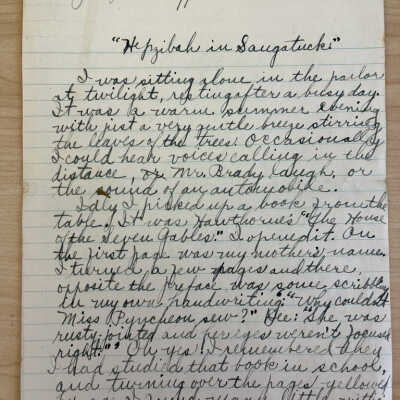 "Hepzibah in Saugatuck."
I was sitting alone in the parlor
at twilight, resting after a busy day.
It was a warm summer evening
with just a very gentle breeze stirring
the leaves of the trees. Occasionally
I could hear voices calling in the
distance, or Mr. Brady laugh, or
the sound of an automobile.
Idly I picked up a book from the
table. It was Hawthorne's "The House
of the Seven Gables." I opened it. On
the first page was my mother's name.
I turned a few pages and there,
opposite the preface was some scribbling
in my own handwriting. "Why couldn't
Miss Pyncheon sew?" "She was
rusty jointed and her eyes weren't focused
right." Oh yes! I remembered
I had studied that book in school,
and turning over the pages, yellowed